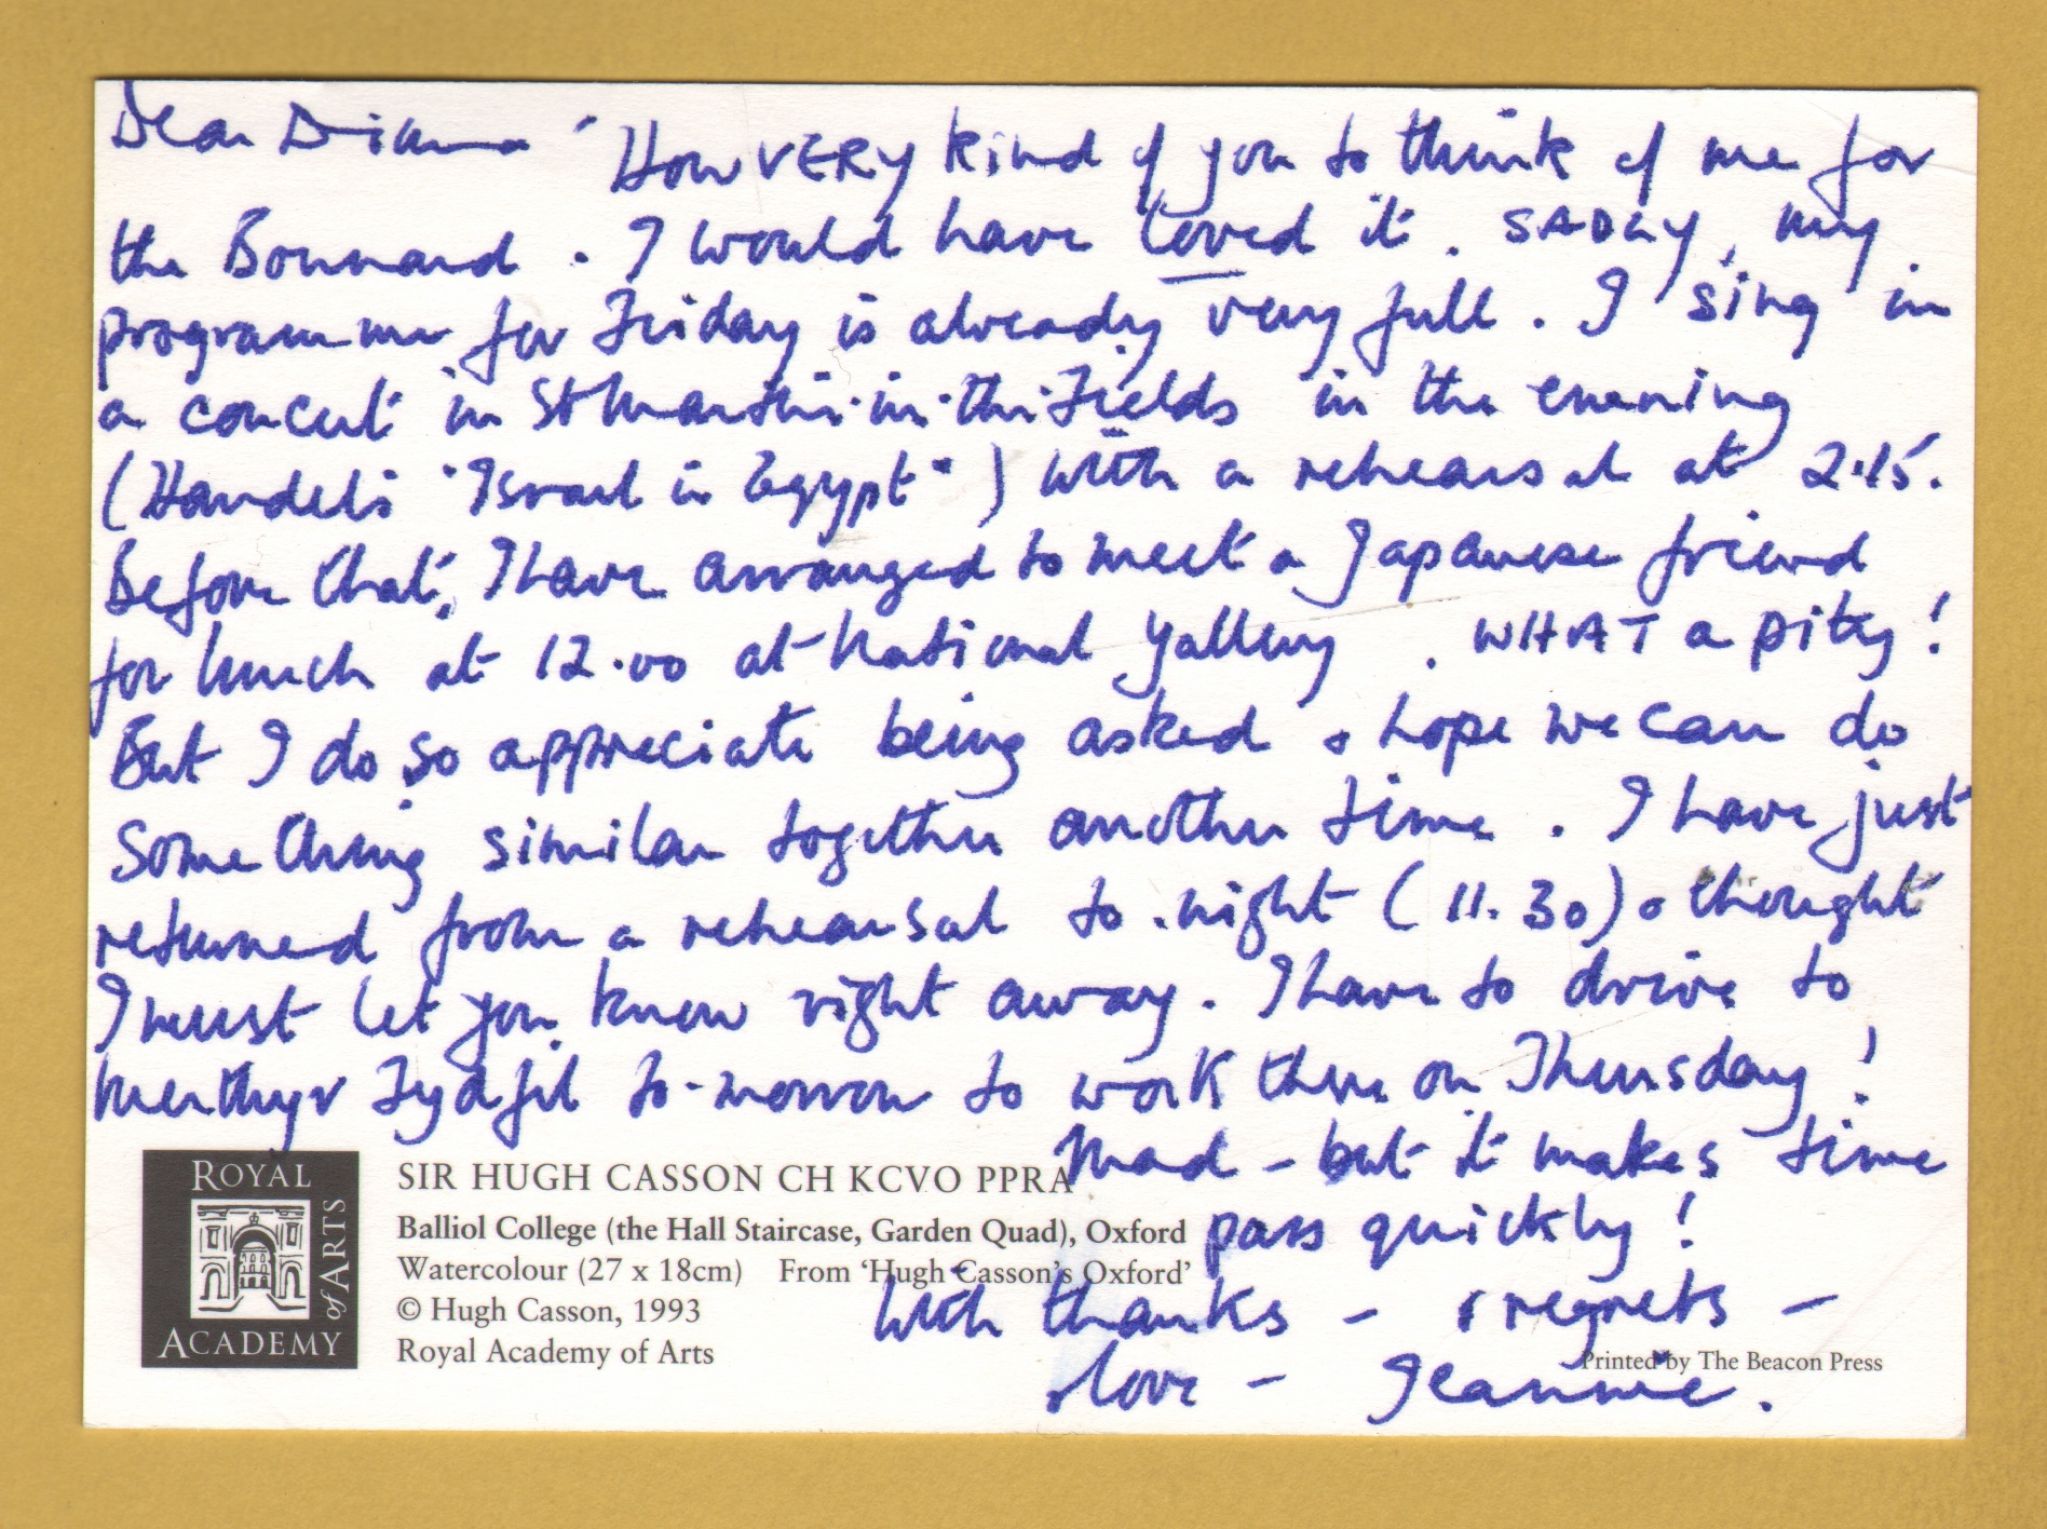 Dear Diana How VERY kind of you to think of me for
the Bonnard. I would have loved it. SADLY, my
programme for Friday is already very full. I sing in
a concert in St Martin-in-the-Fields in the evening
(Handel's "Israel in Egypt") with a rehearsal at 2.15.
Before that, I have arranged to meet a Japanese friend
for lunch at 12.00 at National Gallery. WHAT a pity!
But I do so appreciate being asked & hope we can do
something similar together another time. I have just
returned from a rehearsal to-night (11.30) & thought
I must let you know right away. I have to drive to
Merthyr Tydfil to-morrow to work there on Thursday!
Mad - but it makes time
pass quickly!
With thanks - & regrets -
& love - Jeannie.
ROYAL
ACADEMY
of ARTS
SIR HUGH CASSON CH KCVO PPRA
Balliol College (the Hall Staircase, Garden Quad), Oxford
Watercolour (27 x 18cm) From 'Hugh Casson's Oxford'
© Hugh Casson, 1993
Royal Academy of Arts
Printed by The Beacon Press